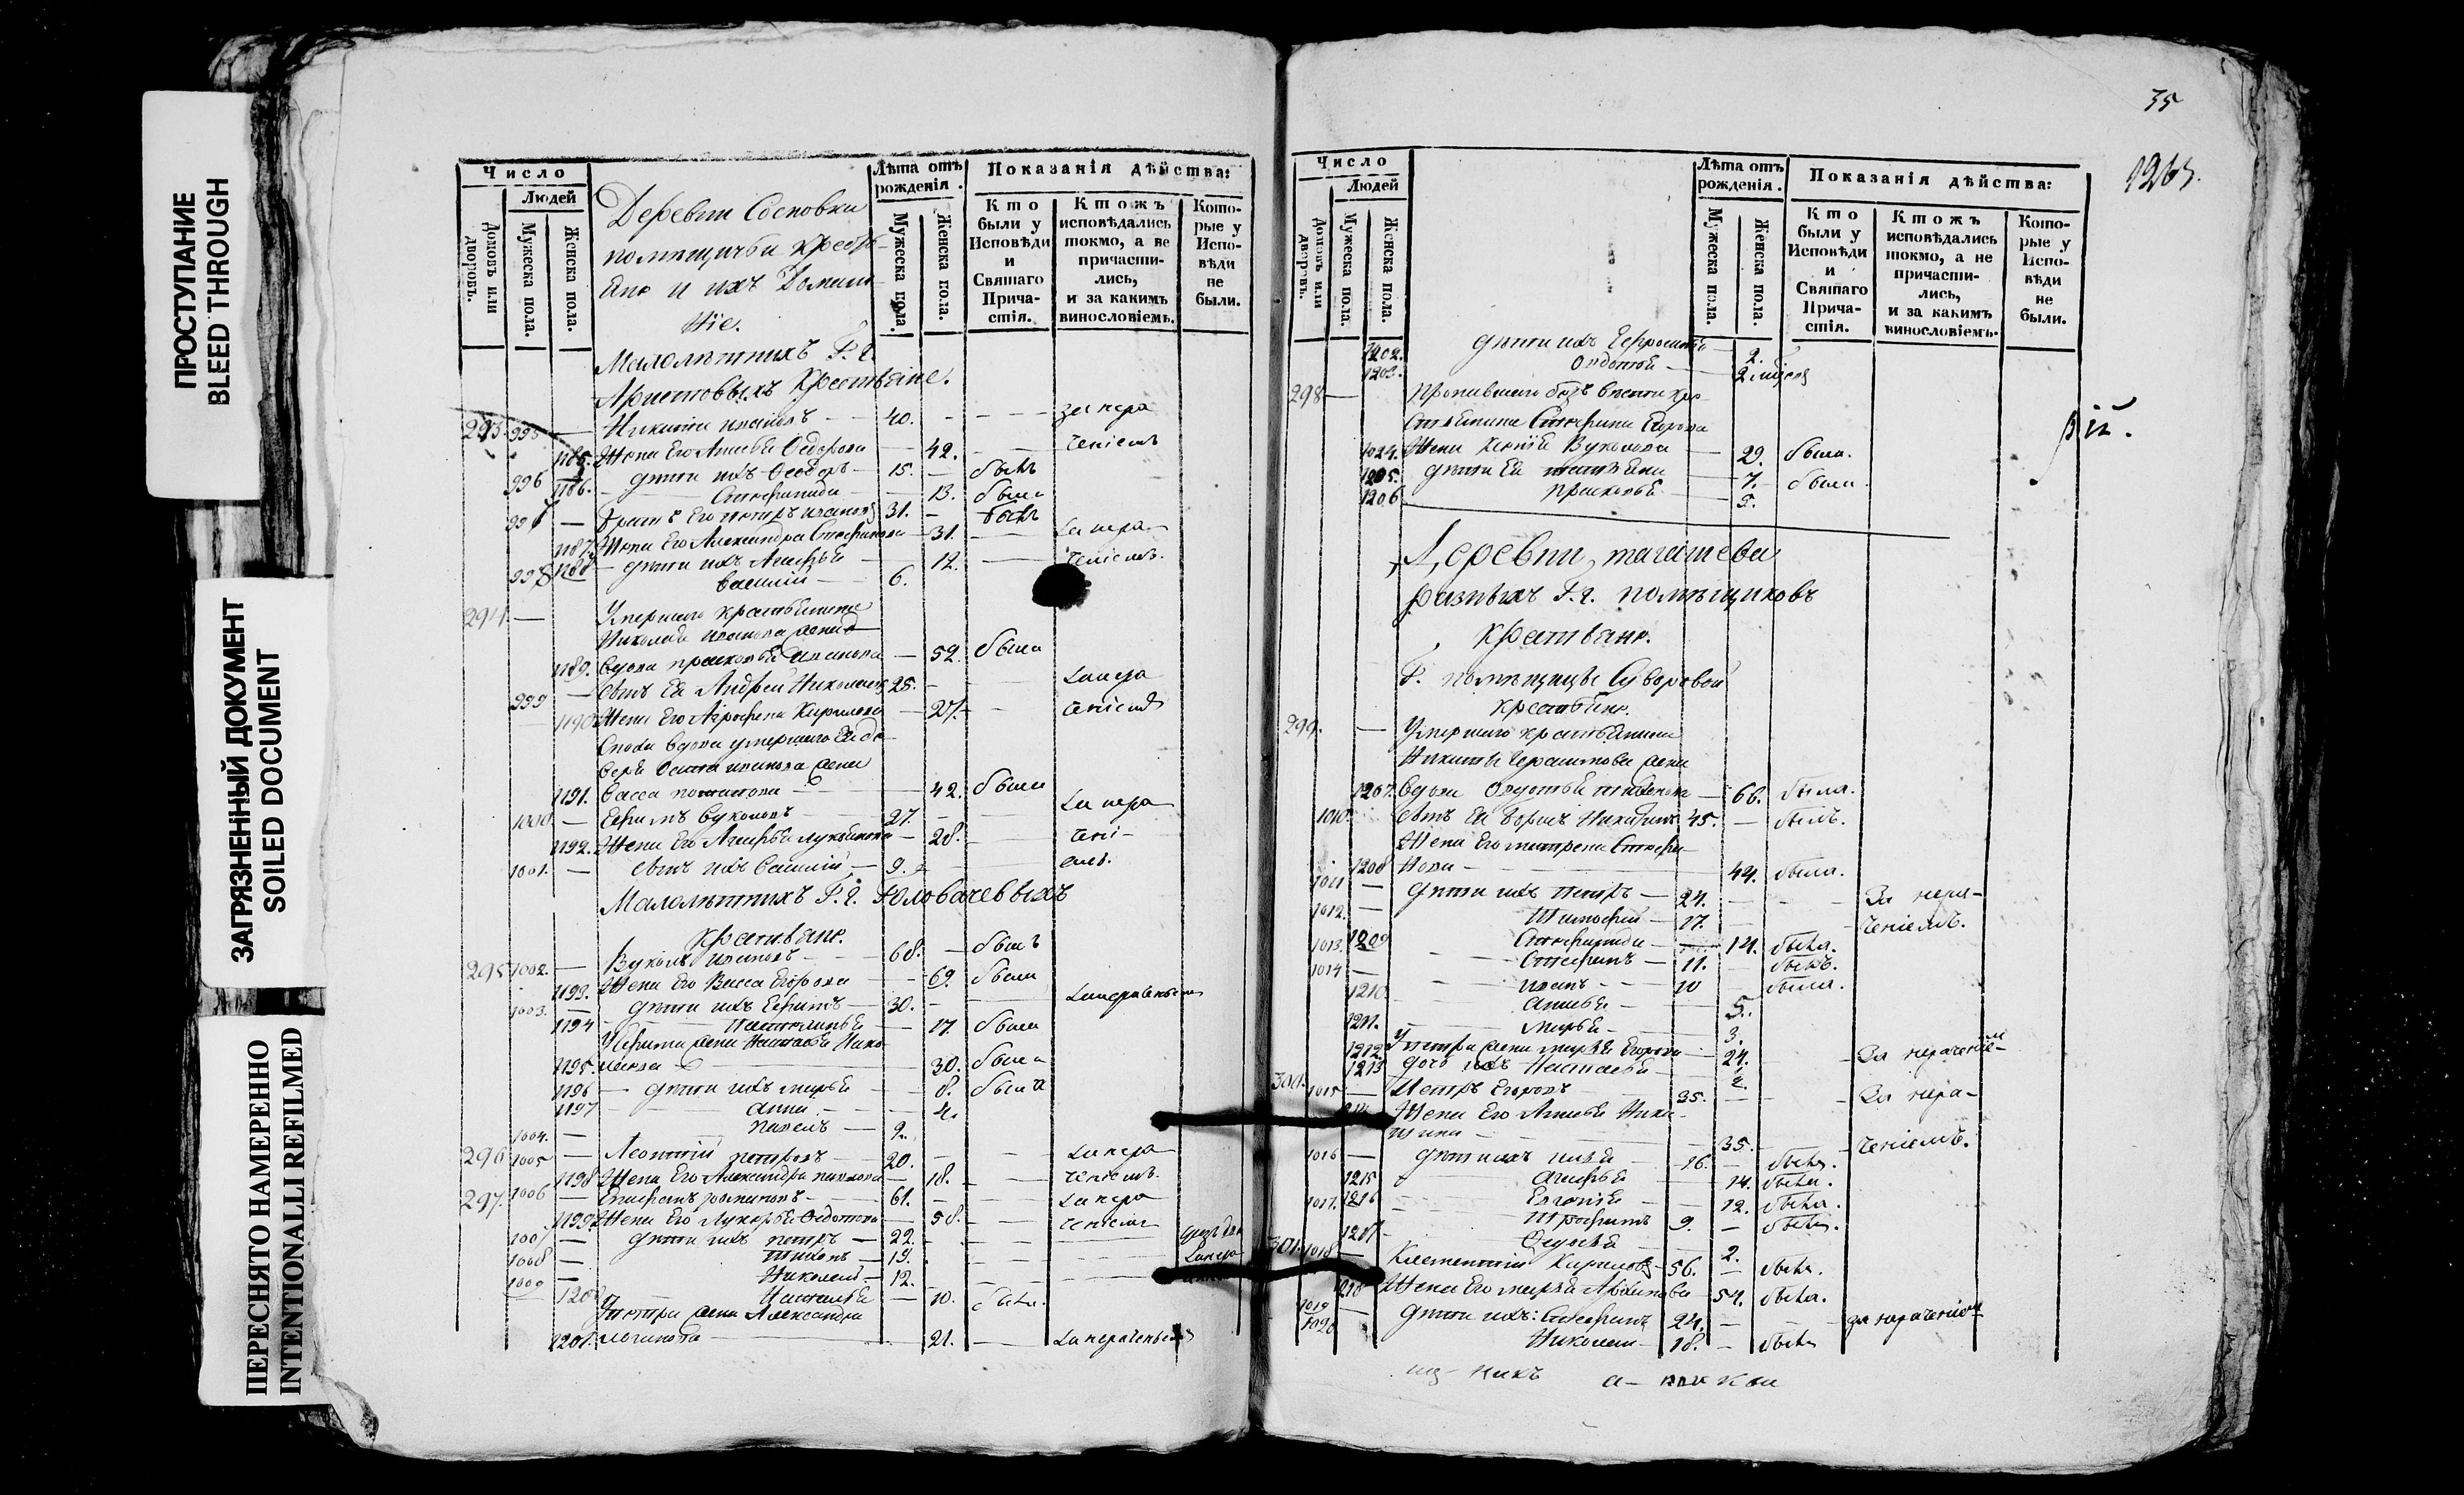 ПРОСТУПАНИЕ
BLEED THROUGH
ЗАГРЯЗНЕННЫЙ ДОКУМЕНТ
SOILED DOCUMENT
ПЕРЕСНЯТО НАМЕРЕННО
INTENTIONALLI REFILMED
Число
Людей
Домовъ или дворовъ.
Мужеска пола.
Женска пола.
Деревни Сосновки
помѣщичьи крестья-
не и ихъ Домашн-
ніе.
Лѣта отъ рожденія.
Мужеска пола.
Женска пола.
Показанія дѣйства:
Кто были у Исповѣди и Святаго Причастія.
Ктожъ исповѣдались токмо, а не причастились, и за какимъ винословіемъ.
Которые у Исповѣди не были.
Малолѣтнихъ Г. г.
Аристовыхъ Крестьяне.
293 995 — Никита Ивановъ 40. за нера
1185. Жена Его Анисья Федорова 42. ченіемъ
996 дѣти ихъ Ѳеодоръ 15. былъ
1186. Степанида 13. была
997 — братъ Его Петръ Ивановъ 31. былъ
1187. Жена Его Александра Степанова 31. за нера
1188 дѣти ихъ Агафья 12. ченіемъ.
998 Василій 6.
294. — Умершаго крестьянина
Николая Иванова жена
1189. вдова Прасковья Иванова 52. была
999 — сынъ Ея Андрей Николаевъ 25. за нера
1190 Жена Его Аграфена Кирилова 27. ченіемъ
Сноха вдова умершаго
жена
1191. Васса 42. была
1000. — Ефимъ Вуколовъ 27. за нера
1192. Жена Его Агафья Лукьянова 28. чені-
1001. — сынъ ихъ Василій 9. емъ.
Малолѣтнихъ Г. г. Головачевыхъ
крестьяне.
295 1002. — Вуколъ Ивановъ 68. былъ
1193. Жена Его Васса Егорова 69. была
1003. — дѣти ихъ Ефимъ 30. за нераченьемъ
1194 17. была
У Ефима жена Настасья Нико-
1195. лаева 30. была
1196 — дѣти ихъ Марья 8. была
1197 Анна 4.
1004. — Павелъ 2.
296 1005 — Леонтій Петровъ 20. за нера
1198 Жена Его Александра Павлова 18. ченіемъ.
297. 1006 — Епифанъ 61. за нера
1199. Жена Его Лукерья Федотова 58. ченіемъ
1007 — дѣти ихъ Петръ 22.
1008 — Тихонъ 19. за нера
1009 — Николай 12.
120 Наталья 10. была.
У Петра жена Александра
1201. Логинова 21. за нераченьемъ
35
1265.
Число
Людей
Домовъ или дворовъ.
Мужеска пола.
Женска пола.
Лѣта отъ рожденія.
Мужеска пола.
Женска пола.
Показанія дѣйства:
Кто были у Исповѣди и Святаго Причастія.
Ктожъ исповѣдались токмо, а не причастились, и за какимъ винословіемъ.
Которые у Исповѣди не были.
1202. дѣти ихъ Ефросинья 2.
1203. Авдотья 2 мѣсяц
298 — безъ вѣсти кре-
стьянина Степана Егорова
1024. Жена Ксенія Вуколова 29. была.
1205. дѣти Ея Татьяна 7. была.
1206 Прасковья 5.
Деревни
разныхъ Г. г. помѣщиковъ
крестьяне.
Г. помѣщицы Суворовой
крестьяне.
299. — Умершаго крестьянина
Никиты жена
1207. вдова 66. была.
1010. сынъ Ея Борисъ Никитинъ 45. — былъ.
Жена Его Матрена Степа-
1208 нова 44. была.
1011 — дѣти ихъ Петръ 24. За нера-
1012. — Тимофей 17. ченіемъ.
1209 Степанида 14. была.
1013. Степанъ 11. былъ.
1014 — Иванъ 10 была.
1210. Анисья 5.
1211. Марья 3.
1212 У Петра жена Марья Егорова 24. За нераченіемъ
1213 дочь ихъ Настасья 2.
300. 1015 — Петръ Егоровъ 35. За нера-
Жена Его Анисья Ники-
тина 35. ченіемъ.
1016 — дѣти ихъ 16. былъ.
1215 Агафья 14. была.
1216 Евгенія 12. была.
1017. Трофимъ 9. — былъ.
1217 2.
301. 1018 — Климентій Кириловъ 56. былъ.
1218 Жена Его Марья 54. была.
1019 — дѣти ихъ: Степанъ 24. — за нераченіемъ
1020 Николай 18. — былъ